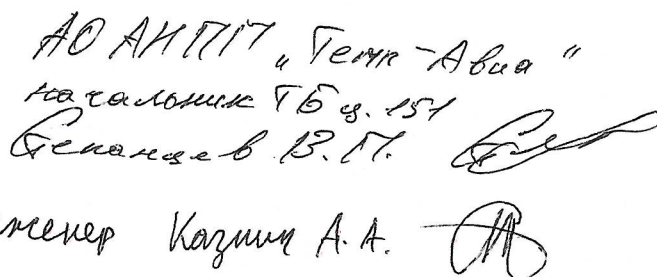 АО АНПП „Темп-Авиа“
начальник ТБ ц. 151
Степанцев В.П.
женер Казнин А.А.